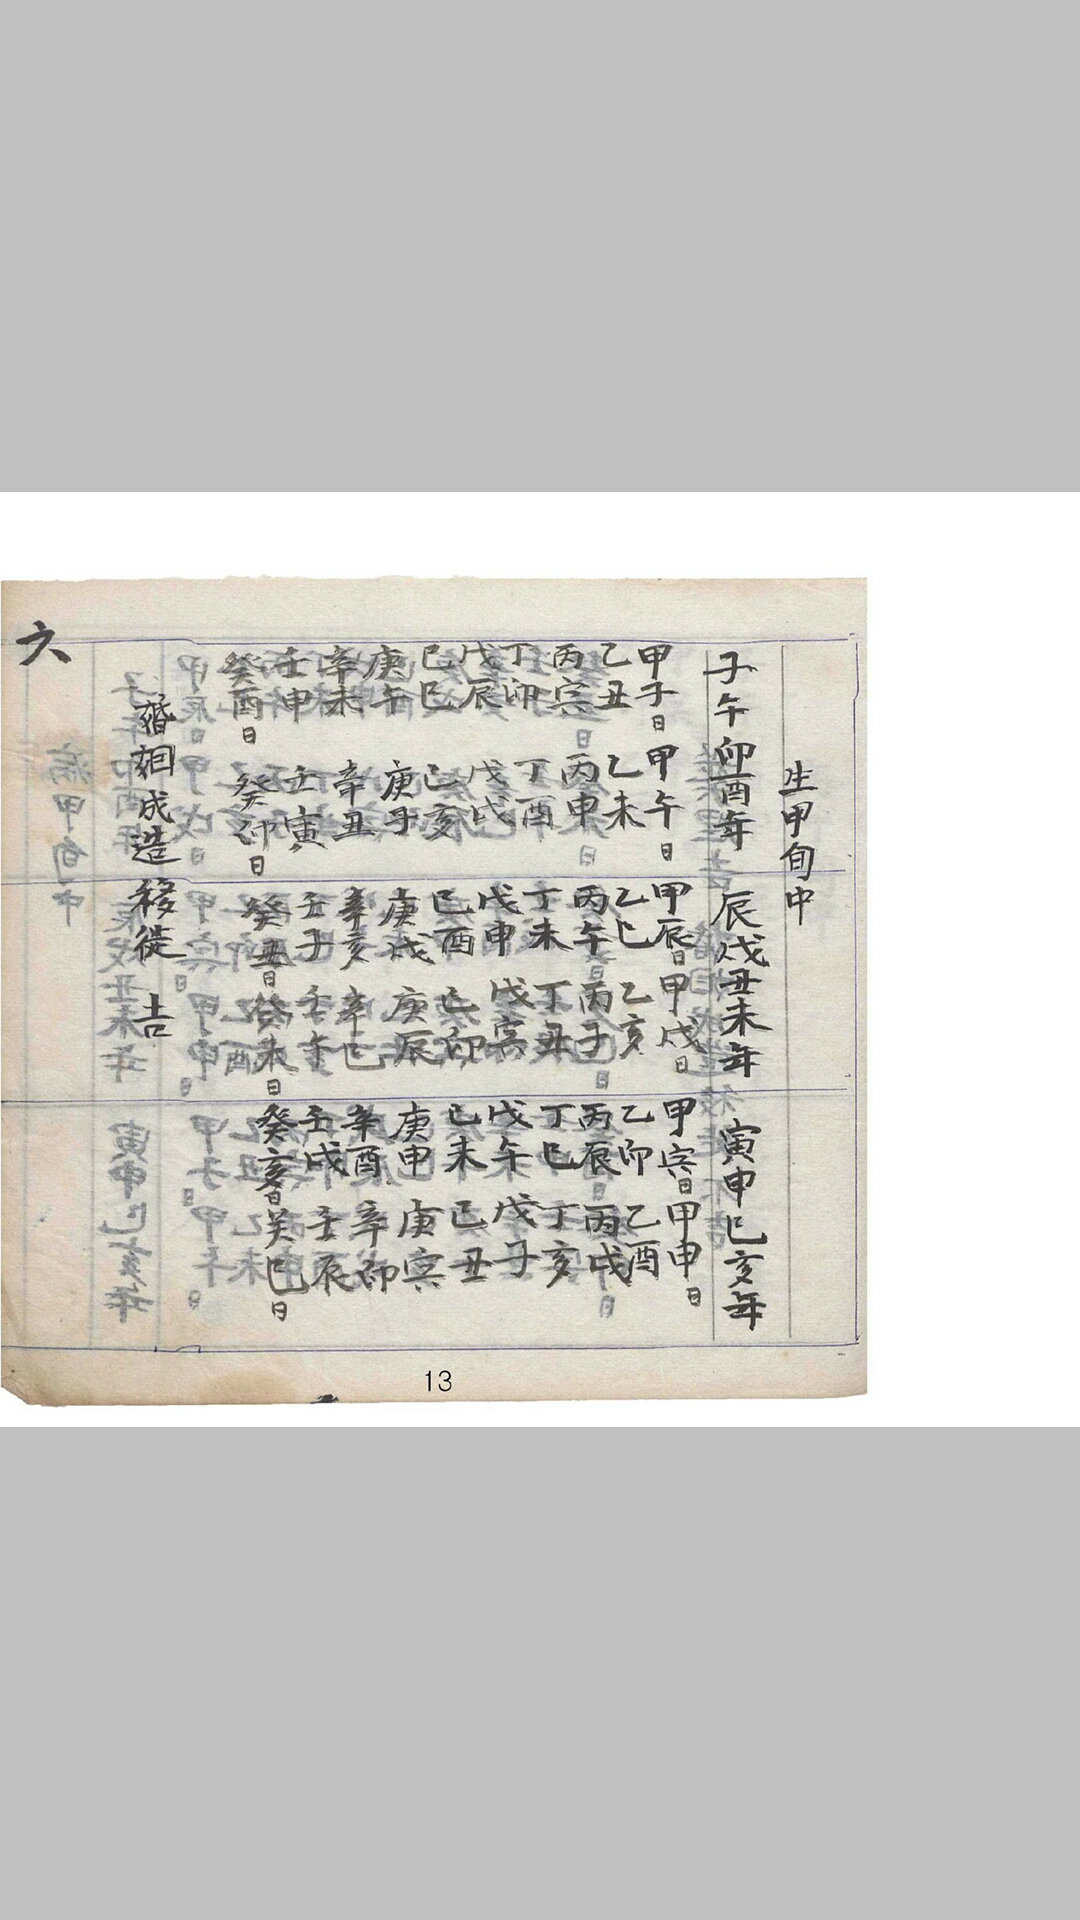 生甲旬中
子午卯酉年 辰戌丑未年 寅申巳亥年
甲子日 甲午日 甲辰日 甲戌日 甲寅日 甲申日
乙丑 乙未 乙巳 乙亥 乙卯 乙酉
丙寅 丙申 丙午 丙子 丙辰 丙戌
丁卯 丁酉 丁未 丁丑 丁巳 丁亥
戊辰 戊戌 戊申 戊寅 戊午 戊子
己巳 己亥 己酉 己卯 己未 己丑
庚午 庚子 庚戌 庚辰 庚申 庚寅
辛未 辛丑 辛亥 辛巳 辛酉 辛卯
壬申 壬寅 壬子 壬午 壬戌 壬辰
癸酉日 癸卯日 癸丑日 癸未日 癸亥日 癸巳日
婚姻成造移徙 吉
六
13